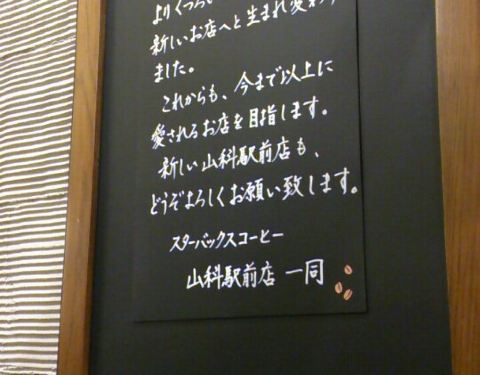 よりくつろい
新しいお店へと生まれ変わり
ました。
これからも、今まで以上に
愛されるお店を目指します。
新しい山科駅前店も、
どうぞよろしくお願い致します。
スターバックスコーヒー
山科駅前店 一同